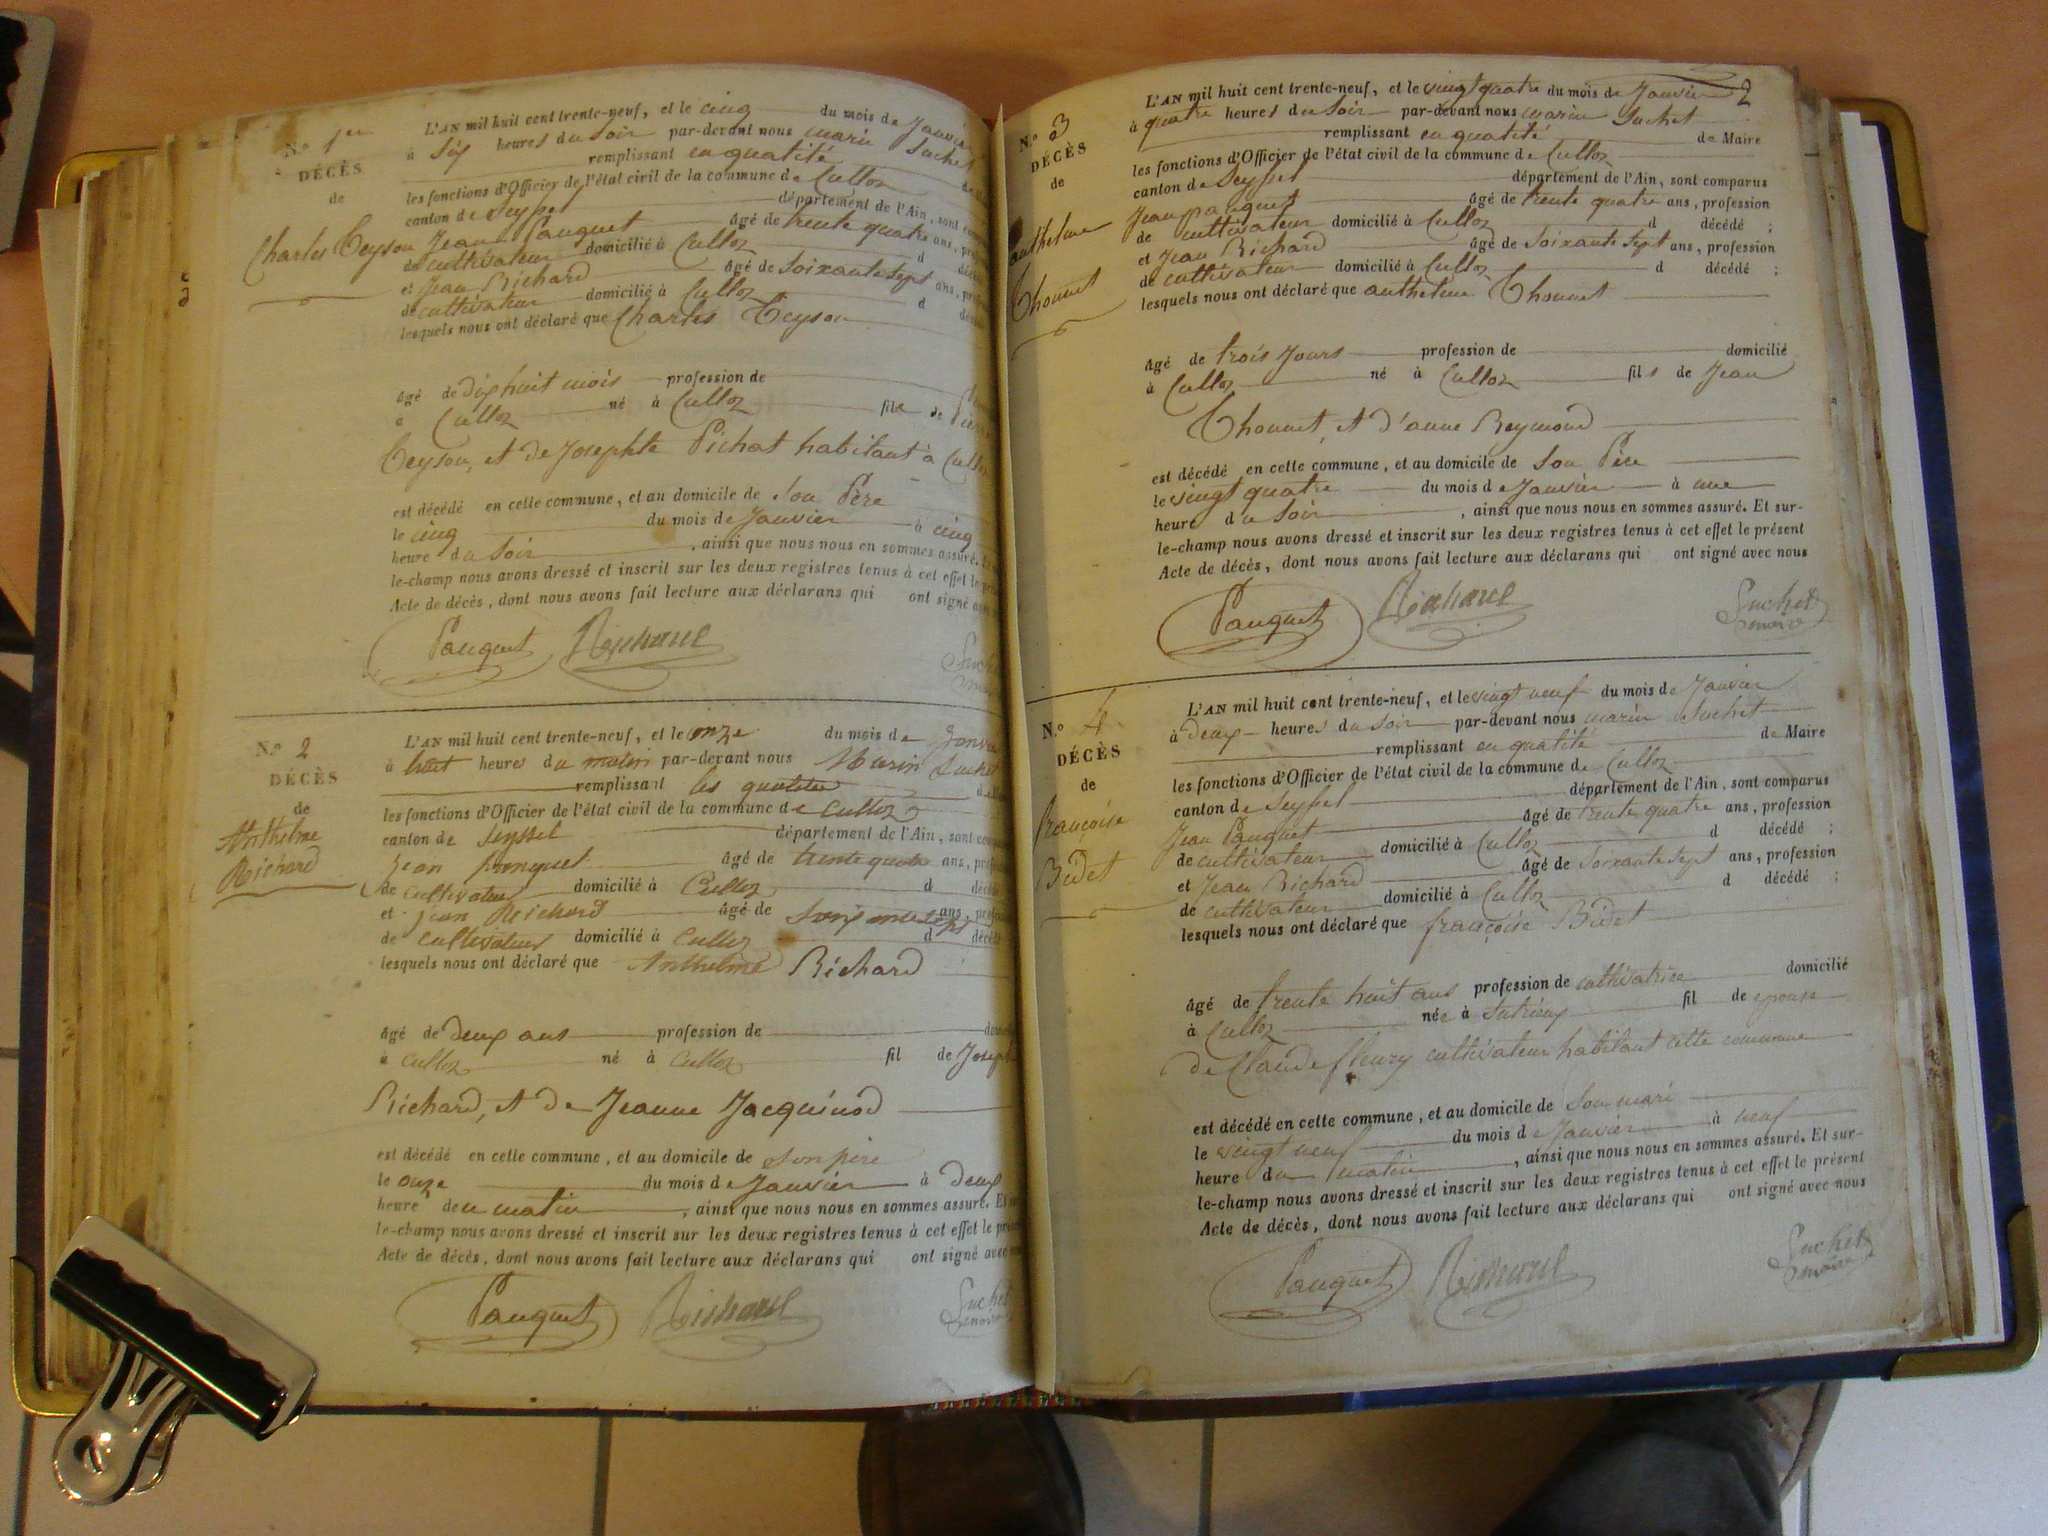 N.º 1er
DÉCÈS
de
Charles Ceyson
L'AN mil huit cent trente-neuf, et le cinq du mois de Janvier
à Six heures du Soir par-devant nous marin Suchet
remplissant en qualité
les fonctions d'Officier de l'état civil de la commune de Culloz
canton de Seyssel département de l'Ain, sont
Jean Pauquet âgé de trente quatre ans,
de cultivateur domicilié à Culloz d
et Jean Richard âgé de Soixante Sept ans,
de cultivateur domicilié à Culloz d
lesquels nous ont déclaré que Charles Ceyson
âgé de dix huit mois profession de
à Culloz né à Culloz fils de Pierre
Ceyson, et de Josephte Pichat habitant à Culloz
est décédé en cette commune, et au domicile de Son Père
le cinq du mois de Janvier à cinq
heure du Soir, ainsi que nous nous en sommes assuré.
le-champ nous avons dressé et inscrit sur les deux registres tenus à cet effet le
Acte de décès, dont nous avons fait lecture aux déclarans qui ont signé
Pauquet Richard Suchet
N.º 2
DÉCÈS
de
Anthelme
Richard
L'AN mil huit cent trente-neuf, et le onze du mois de Janvier
à huit heures du matin par-devant nous Marin Suchet
remplissant les
les fonctions d'Officier de l'état civil de la commune de Culloz
canton de Seyssel département de l'Ain, sont
Jean Pauquet âgé de trente quatre ans,
de cultivateur domicilié à Culloz d
et jean Richard âgé de ans,
de cultivateur domicilié à Culloz d
lesquels nous ont déclaré que Anthelme Richard
âgé de deux ans profession de
à Culloz né à Culloz fil de Joseph
Richard, et de Jeanne Jacquinod
est décédé en cette commune, et au domicile de Son père
le onze du mois de Janvier à deux
heure de matin, ainsi que nous nous en sommes assuré. Et
le-champ nous avons dressé et inscrit sur les deux registres tenus à cet effet le
Acte de décès, dont nous avons fait lecture aux déclarans qui ont signé avec
Pauquet Richard Suchet
2
N.º 3
DÉCÈS
de
anthelme
Thonnet
L'AN mil huit cent trente-neuf, et le vingt quatre du mois de Janvier
à quatre heures du Soir par-devant nous marin Suchet
remplissant en qualité de Maire
les fonctions d'Officier de l'état civil de la commune de Culloz
canton de Seyssel département de l'Ain, sont comparus
Jean pauquet âgé de trente quatre ans, profession
de cultivateur domicilié à Culloz d décédé ;
et Jean Richard âgé de Soixante Sept ans, profession
de cultivateur domicilié à Culloz d décédé ;
lesquels nous ont déclaré que anthelme Thonnet
âgé de trois Jours profession de domicilié
à Culloz né à Culloz fils de Jean
Thonnet, et d'anne Reymond
est décédé en cette commune, et au domicile de Son Père
le vingt quatre du mois de Janvier à une
heure du Soir, ainsi que nous nous en sommes assuré. Et sur-
le-champ nous avons dressé et inscrit sur les deux registres tenus à cet effet le présent
Acte de décès, dont nous avons fait lecture aux déclarans qui ont signé avec nous
Pauquet Richard Suchet
maire
N.º 4
DÉCÈS
de
françoise
Bidet
L'AN mil huit cent trente-neuf, et le vingt neuf du mois de Janvier
à deux heures du Soir par-devant nous marin Suchet
remplissant en qualité de Maire
les fonctions d'Officier de l'état civil de la commune de Culloz
canton de Seyssel département de l'Ain, sont comparus
Jean Pauquet âgé de trente quatre ans, profession
de cultivateur domicilié à Culloz d décédé ;
et Jean Richard âgé de Soixante Sept ans, profession
de cultivateur domicilié à Culloz d décédé ;
lesquels nous ont déclaré que françoise Bidet
âgé de trente huit ans profession de cultivatrice domicilié
à Culloz née à fil de epouse
de Claude fleury cultivateur habitant cette commune
est décédé en cette commune, et au domicile de Son mari
le vingt neuf du mois de Janvier à neuf
heure du matin, ainsi que nous nous en sommes assuré. Et sur-
le-champ nous avons dressé et inscrit sur les deux registres tenus à cet effet le présent
Acte de décès, dont nous avons fait lecture aux déclarans qui ont signé avec nous
Pauquet Richard Suchet
maire